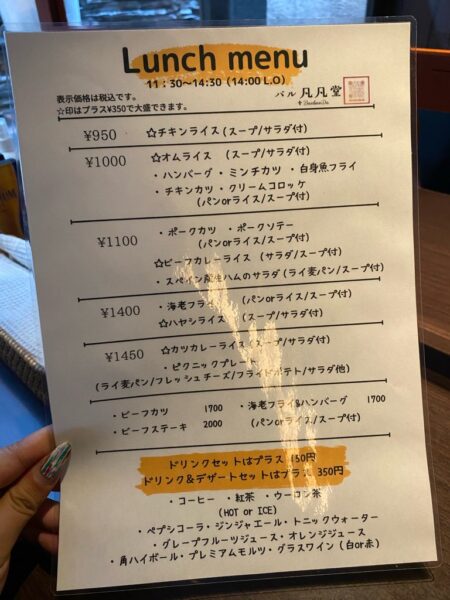 Lunch menu
11：30～14:30（14:00 L.O）
表示価格は税込です。
☆印はプラス¥350で大盛できます。
バル 凡凡堂
¥950 ☆チキンライス（スープ/サラダ付）
¥1000 ☆オムライス （スープ/サラダ付）
・ハンバーグ・ミンチカツ ・白身魚フライ
・チキンカツ・クリームコロッケ
（パンorライス/スープ付）
¥1100 ・ポークカツ ・ポークソテー
（パンorライス/スープ付）
☆ビーフカレーライス （サラダ/スープ付）
・スペイン産生ハムのサラダ（ライ麦パン/スープ付）
¥1400 ・海老フライ （パンorライス/スープ付）
☆ハヤシライス （スープ/サラダ付）
¥1450 ☆カツカレーライス（スープ/サラダ付）
・ピクニックプレート
（ライ麦パン/フレッシュチーズ/フライドポテト/サラダ他）
・ビーフカツ 1700 ・海老フライ&ハンバーグ 1700
・ビーフステーキ 2000 （パンorライス/スープ付）
ドリンクセットはプラス 150円
ドリンク&デザートセットはプラス 350円
・コーヒー ・紅茶 ・ウーロン茶
（HOT or ICE）
・ペプシコーラ・ジンジャエール・トニックウォーター
・グレープフルーツジュース・オレンジジュース
・角ハイボール・プレミアムモルツ・グラスワイン（白or赤）